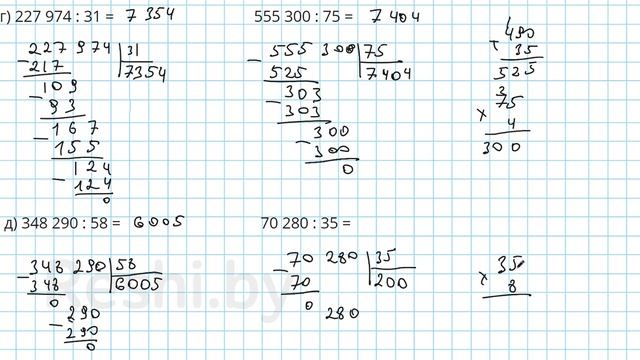 г) 227 974 : 31 = 7 354
227 974 | 31
− 217
7354
109
− 93
167
− 155
124
− 124
0
555 300 : 75 = 7 404
555 300 | 75
− 525
7404
303
− 303
300
− 300
0
490
+ 35
525
3
75
× 4
300
д) 348 290 : 58 = 6005
348 290 | 58
− 348
6005
0
290
− 290
0
70 280 : 35 =
70 280 | 35
− 70
200
0
280
35
× 8
Reshi.by